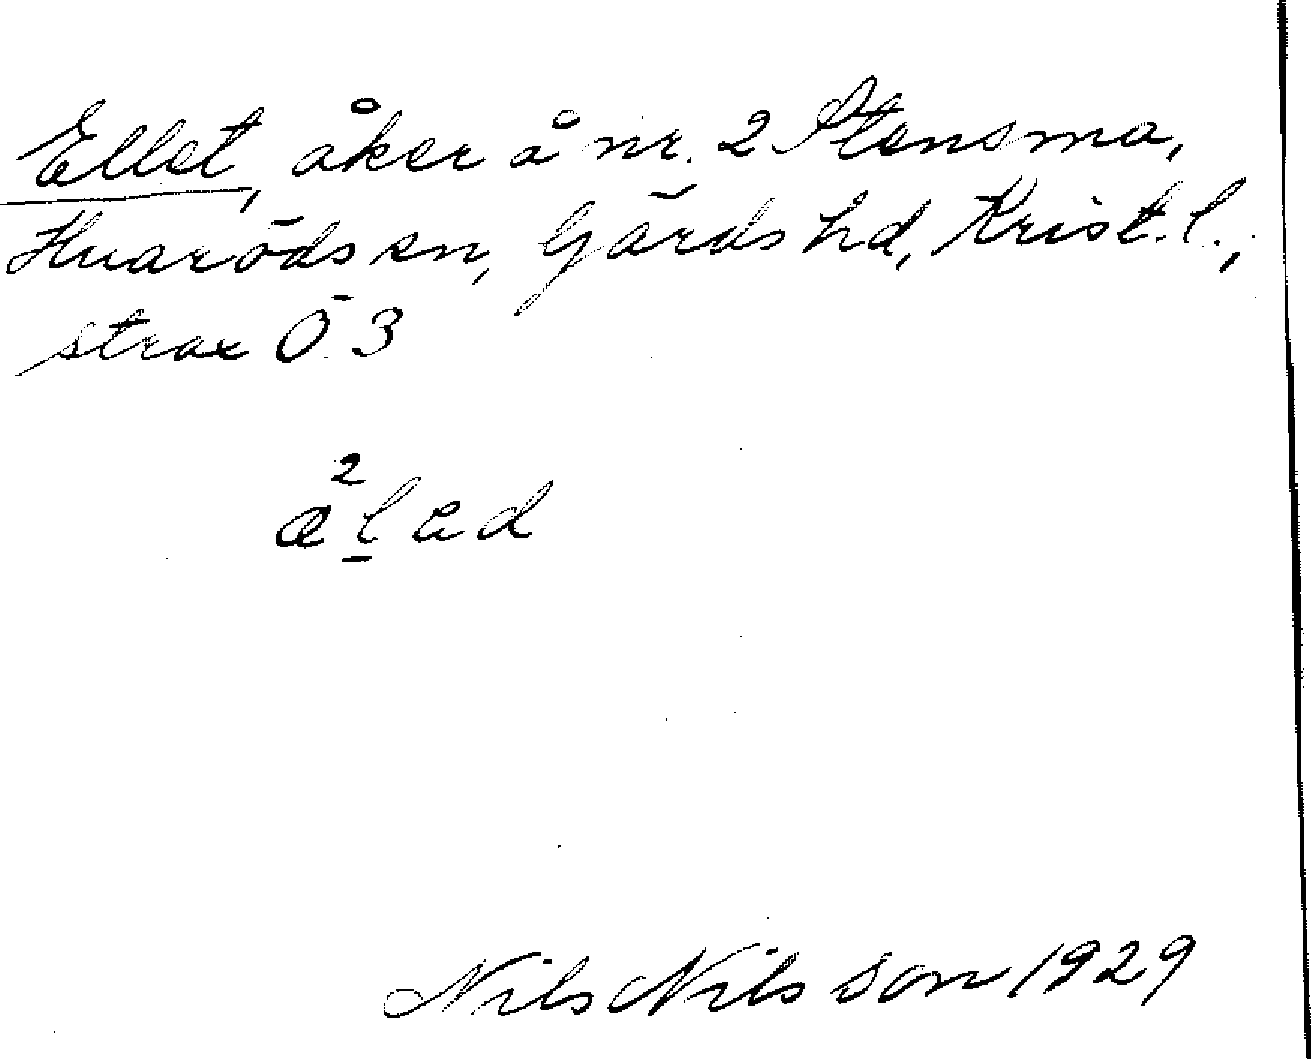 Ellet, åker å nr. 2 Stensma,
Huaröds sn, Gärds hd, Krist. l.,
strax Ö. 3
æ²l̲ad
Nils Nilsson 1929